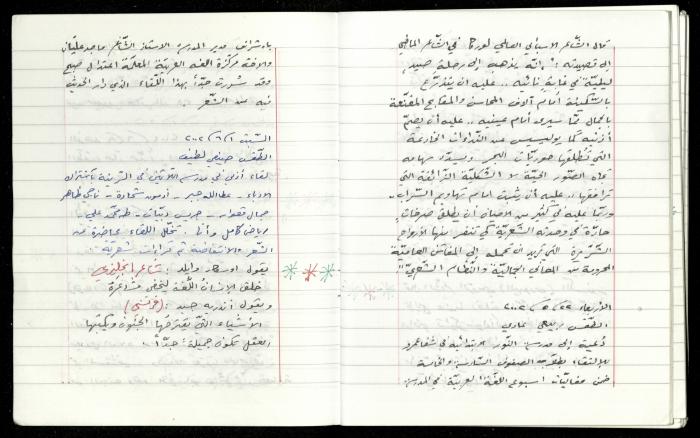 قال الشاعر الاسباني العالمي لوركا في الشاعر الماضي
الى قصيدته: "انه يذهب الى رحلة صيد
ليليّة في غابةٍ نائية.. عليه أن يتذرّع
بالسكينة أمام آلاف المحاسن والمقابح المقنّعة
بالجمال ممّا سيرى أمام عينيه.. عليه أن يصمّ
أذنيه كما يوليسيس عند النداءات الخادعة
التي تُطلقها حوريات البحر ويسدّد سهامه
نحاه الصّور الحيّة لا الشكليّة الزائفة التي
ترافقها.. عليه أن يثبت امام تهاويم السّراب..
وربّما عليه في كثير من الأحيان أن يطلق صرخات
حارّة في وحدته الشعريّة كي تنفر منها الأرواح
الشّريرة التي تريد أن تحمله الى المفاتن العاميّة
المحرومة من المعاني الجماليّة والنظام الشعريّ"
الأربعاء ٢٢/٥/٢٠٠٢
الطقس ربيعي عادي
دُعيت إلى مدرسة النّور الابتدائية في شفاعمرو
للالتقاء بطلّاب الصفوف السادسة والخامسة
ضمن فعاليّات أسبوع اللغة العربيّة في المدرسة
بإشراف مدير المدرسة الاستاذ الشّاعر ماجد عليّان
والأخت مركّزة اللغه العربيّة المعلمة اعتدال صبح
وقد سُررت جدّاً بهذا اللّقاء الذي دار الحديث
فيه عن الشّعر
السّبت ١/٦/٢٠٠٢
الطّقس صيفي لطيف
لقاء أدبي في مدرسة اللاتين في الرينة باشتراك
الأدباء - عطاالله جبر - ادمون شحادة - ناجي ظاهر
جمال قعوار - جريس دبيّات - طه محمّد علي -
رياض كامل وأنا. تخلّل اللقاء محاضرة عن
الشّعر والانتفاضة ثم قراءات شعريّة
يقول اوسكار وايلد: شاعر إنجليزي
خلق الإنسان اللّغة ليخفي مشاعره
ويقول أندريه جيد: (فرنسي)
الأشياء التي يقترحها الجنون ويكتبها
العقل تكون جميلة جدّاً.